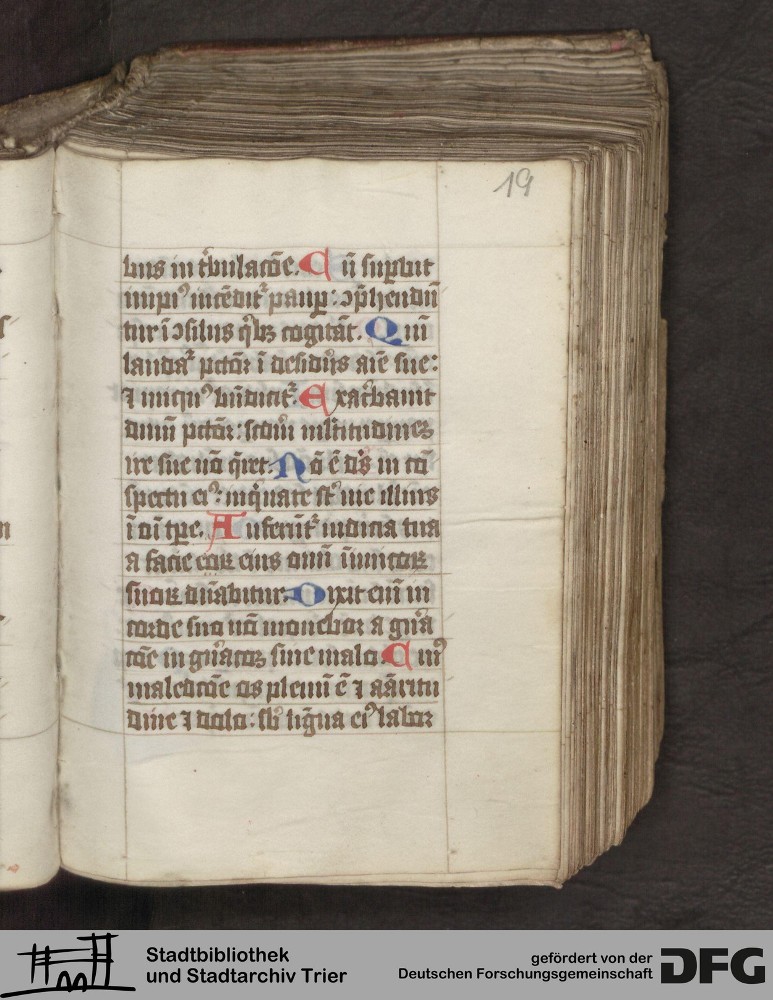 19
bus in t'bulac̄oe. Cū sup̄buit
impi⁹ incēdit᷑ paup̄: ↄp̄hendūt
tur ī ↄsiliis q'bꝫ cogitāt. Qm̄
laudat᷑ pctōr ī desid'iis aīe sue:
⁊ iniqu⁹ bn̄dicit᷑. Exac'bauit
dn̄m pctōr: scd̄m m̄ltitudinē
ire sue nō q̄ret. Nō ē d's in cō
spectu ei⁹: inq'nate st̄ uie illius
ī oī tp̄e. Auferūt᷑ iudicia tua
a facie eius oīm īimicoꝝ
suoꝝ dn̄abitur. Dixit enī in
corde suo nō mouebor a gn̄a
c̄oe in gn̄ac̄oꝫ sine malo. Cui⁹
maledc̄oe os plenū ē ⁊ am̄ritu
dine ⁊ dolo: sb̄ lig̃ua ei⁹ labor
Stadtbibliothek
und Stadtarchiv Trier
gefördert von der
Deutschen Forschungsgemeinschaft
DFG